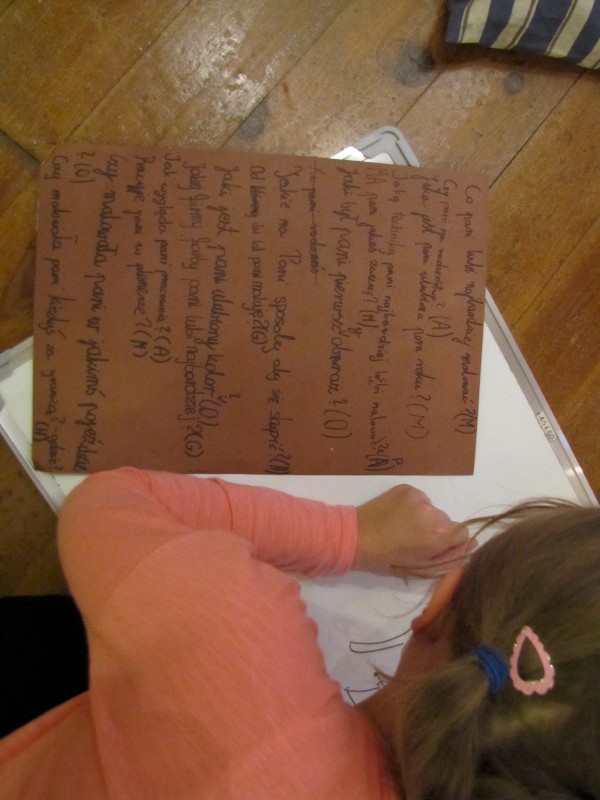 Co pani lubi najbardziej malować? (M)
Czy pani ma rodzeństwo? (A)
Jaka jest pani ulubiona pora roku? (M)
Jaką techniką pani najbardziej lubi malować? (A)
pani jakieś (M)
Jaki był pani pierwszy obraz? (O)
Jakie ma Pani sposoby, aby się skupić? (A)
Od ilu lat pani maluje? (G)
Jaki jest pani ulubiony kolor? (O)
Jakie farby pani lubi najbardziej? (G)
Jak wygląda pani pracownia? (A)
Pracuje pani w plenerze? (M)
Czy malowała pani w jakimś pojeździe
? (O)
Czy malowała pani kiedyś za granicą?
(M)